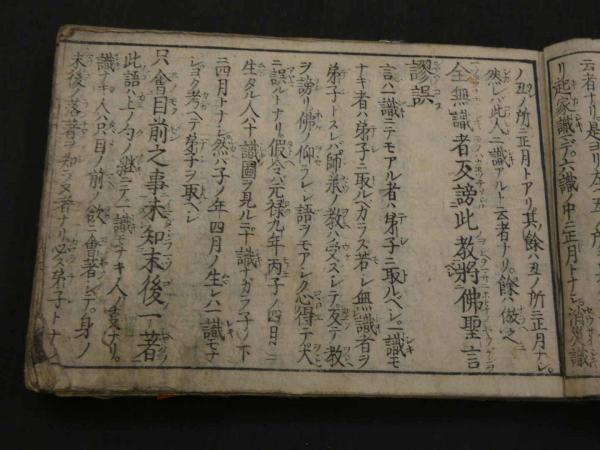 云者ナリ是ヨリ左ノ五ノ所
リ起家識デ公識ノ中ニ正月トナシ消災識
ノ丑ノ所ニ正月トアリ其餘ハ丑ノ所ニ正月ナシ
然レバ此人ニ識アルト云者ナリ餘ハ倣之
全無識者反謗此教將佛聖言
謬誤
言ハ一識ニテモアル者ハ弟子ニ取ルベシ一識モ
ナキ者ハ弟子ニ取ルベカラズ若シ無識者ヲ
弟子トスレバ師ノ教ヘヲ受ズシテ反テ教
ヲ謗リ佛ノ仰ラレシ語ヲモアシク心得テ大
ニ誤ルトナリ假令バ元禄九年丙子ノ四月ニ
生タル人ハ十識圖ヲ見ルニ十識ナガラ子ノ下
ニ四月トナシ然バ子ノ年四月ノ生レハ一識モナ
シヨク考ヘテ弟子ヲ取ベシ
只會目前之事未知末後一著
此語ハ上ノ句ノ繼ニテ一識モナキ人ノ事ナリ
識ナキ人ハ只目ノ前ノ欲ニ會著シテ身ノ
末後ノ落著ヲ知ラヌ者ナリ必ズ弟子トナシ